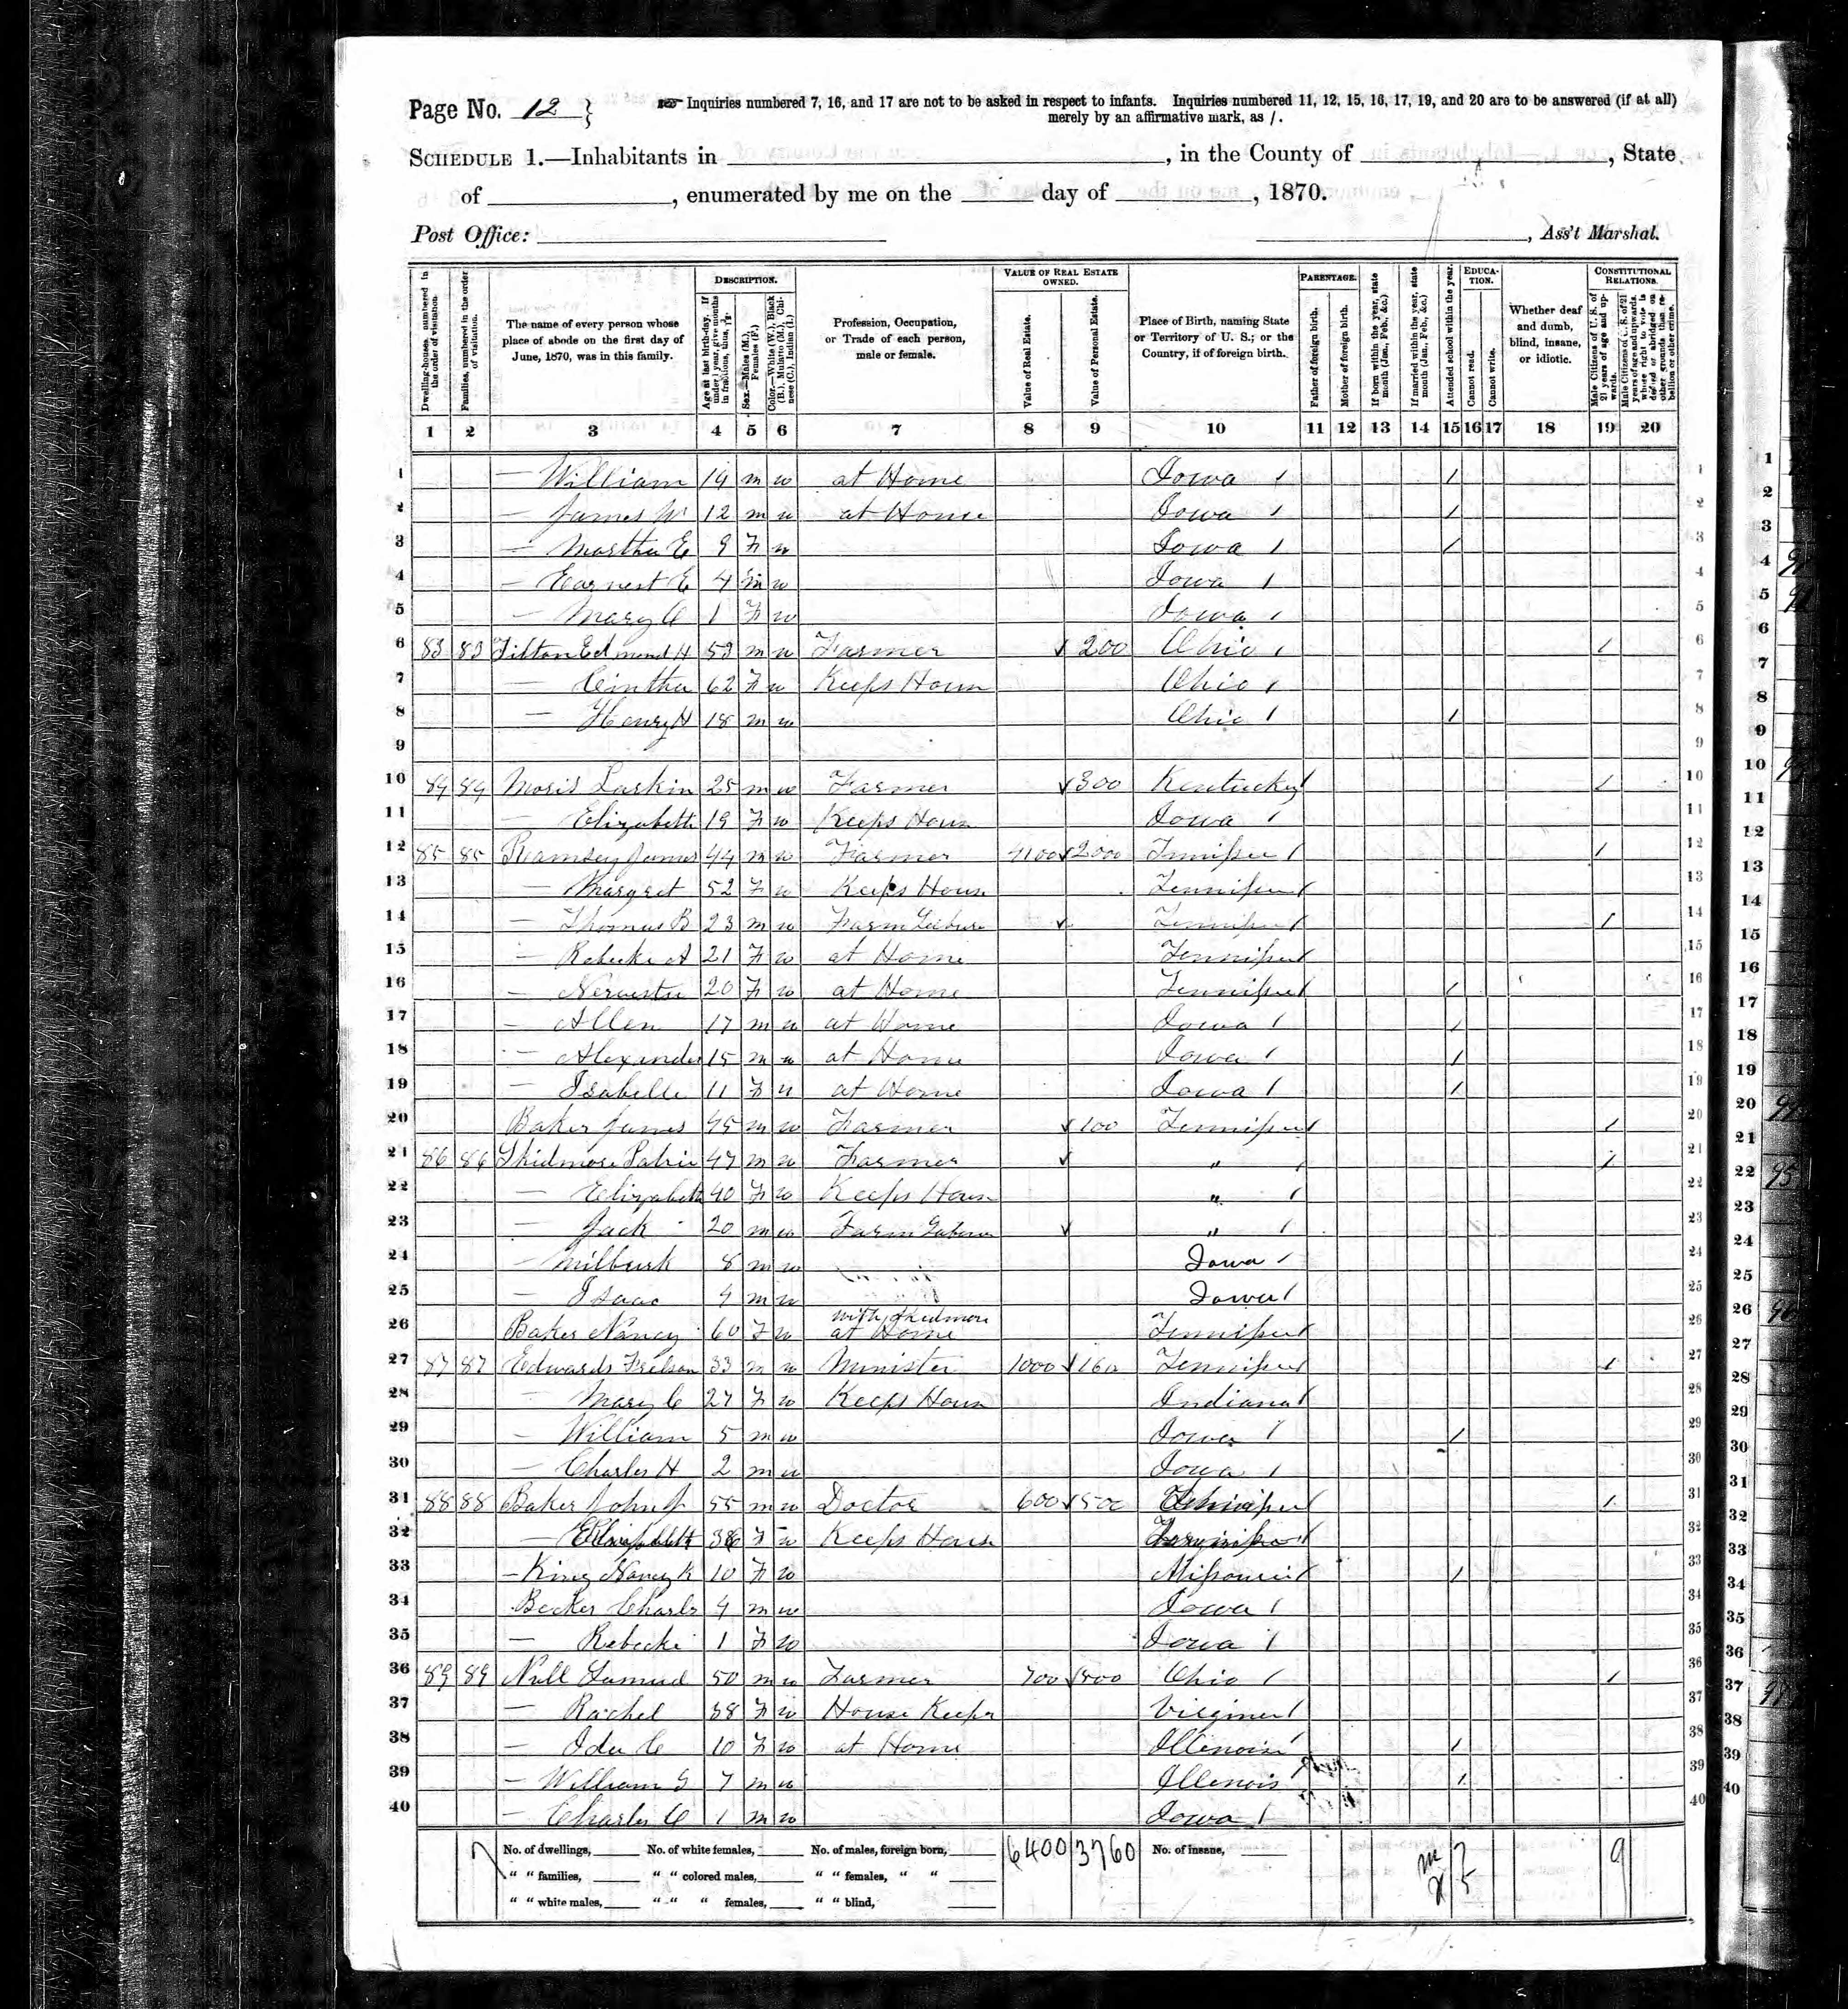 Page No. 12 }
Inquiries numbered 7, 16, and 17 are not to be asked in respect to infants. Inquiries numbered 11, 12, 15, 16, 17, 19, and 20 are to be answered (if at all)
merely by an affirmative mark, as /.
SCHEDULE 1.—Inhabitants in , in the County of , State
of , enumerated by me on the day of , 1870.
Post Office: , Ass't Marshal.
Dwelling-houses, numbered in the order of visitation.
Families, numbered in the order of visitation.
The name of every person whose place of abode on the first day of June, 1870, was in this family.
DESCRIPTION.
Age at last birth-day. If under 1 year, give months in fractions, thus, 3/12
Sex.—Males (M.), Females (F.)
Color.—White (W.), Black (B.), Mulatto (M.), Chinese (C.), Indian (I.)
Profession, Occupation, or Trade of each person, male or female.
VALUE OF REAL ESTATE OWNED.
Value of Real Estate.
Value of Personal Estate.
Place of Birth, naming State or Territory of U. S.; or the Country, if of foreign birth.
PARENTAGE.
Father of foreign birth.
Mother of foreign birth.
If born within the year, state month (Jan., Feb., &c.)
If married within the year, state month (Jan., Feb., &c.)
Attended school within the year.
EDUCATION.
Cannot read.
Cannot write.
Whether deaf and dumb, blind, insane, or idiotic.
CONSTITUTIONAL RELATIONS.
Male Citizens of U. S. of 21 years of age and upwards.
Male Citizens of U. S. of 21 years of age and upwards, whose right to vote is denied or abridged on other grounds than rebellion or other crime.
1 2 3 4 5 6 7 8 9 10 11 12 13 14 15 16 17 18 19 20
1 — William 14 m w at Home Iowa / / 1
2 — James W 12 m w at House Iowa / / 2
3 — Martha E 9 F w Iowa / / 3
4 — Earnest E 4 m w Iowa / 4
5 — Mary C 1 F w Iowa / 5
6 83 83 Tilton Edmond H 53 m w Farmer 200 Ohio / / 6
7 — Cintha 62 F w Keeps House Ohio / 7
8 — Henry H 18 m w Ohio / / 8
9 9
10 84 84 Moris Larkin 25 m w Farmer 300 Kentucky / / 10
11 — Elizabeth 19 F w Keeps House Iowa / 11
12 85 85 Ramsey James 44 m w Farmer 4100 2000 Tennissee / / 12
13 — Margret 52 F w Keeps House Tennissee / 13
14 — Thomas B 23 m w Farm Tennissee / / 14
15 — Rebecke A 21 F w at Home Tennissee / 15
16 — 20 F w at Home Tennissee / / 16
17 — Allen 17 m w at Home Iowa / / 17
18 — Alexander 15 m w at Home Iowa / / 18
19 — Isabelle 11 F w at Home Iowa / / 19
20 Baker James 45 m w Farmer 100 Tennissee / / 20
21 86 86 Skidmore 47 m w Farmer " / / 21
22 — Elizabeth 40 F w Keeps House " / 22
23 — Jack 20 m w Farm Laborer " / 23
24 — 8 m w Iowa / 24
25 — Isaac 4 m w Iowa / 25
26 Baker Nancy 60 F w with Skidmore at Home Tennissee / 26
27 87 87 Edwards 33 m w Minister 1000 160 Tennissee / / 27
28 — Mary C 27 F w Keeps House Indiana / 28
29 — William 5 m w Iowa / / 29
30 — Charles H 2 m w Iowa / 30
31 88 88 Baker John J 55 m w Doctor 600 500 Tennissee / / 31
32 — Elizabeth 36 F w Keeps House Tennissee / 32
33 — King Nancy K 10 F w Missouri / / 33
34 Becker Charls 4 m w Iowa / 34
35 — Rebecke 1 F w Iowa / 35
36 89 89 Null Samuel 50 m w Farmer 700 500 Ohio / / 36
37 — Rachel 38 F w House Keeper Virginia / 37
38 — Ida C 10 F w at Home Illenois / / 38
39 — William G 7 m w Illenois / 39
40 — Charles C 1 m w Iowa / 40
No. of dwellings, No. of white females, No. of males, foreign born, 6400 3760 No. of insane, m 7 9
" " families, " " colored males, " " females, " " 5
" " white males, " " " females, " " blind,